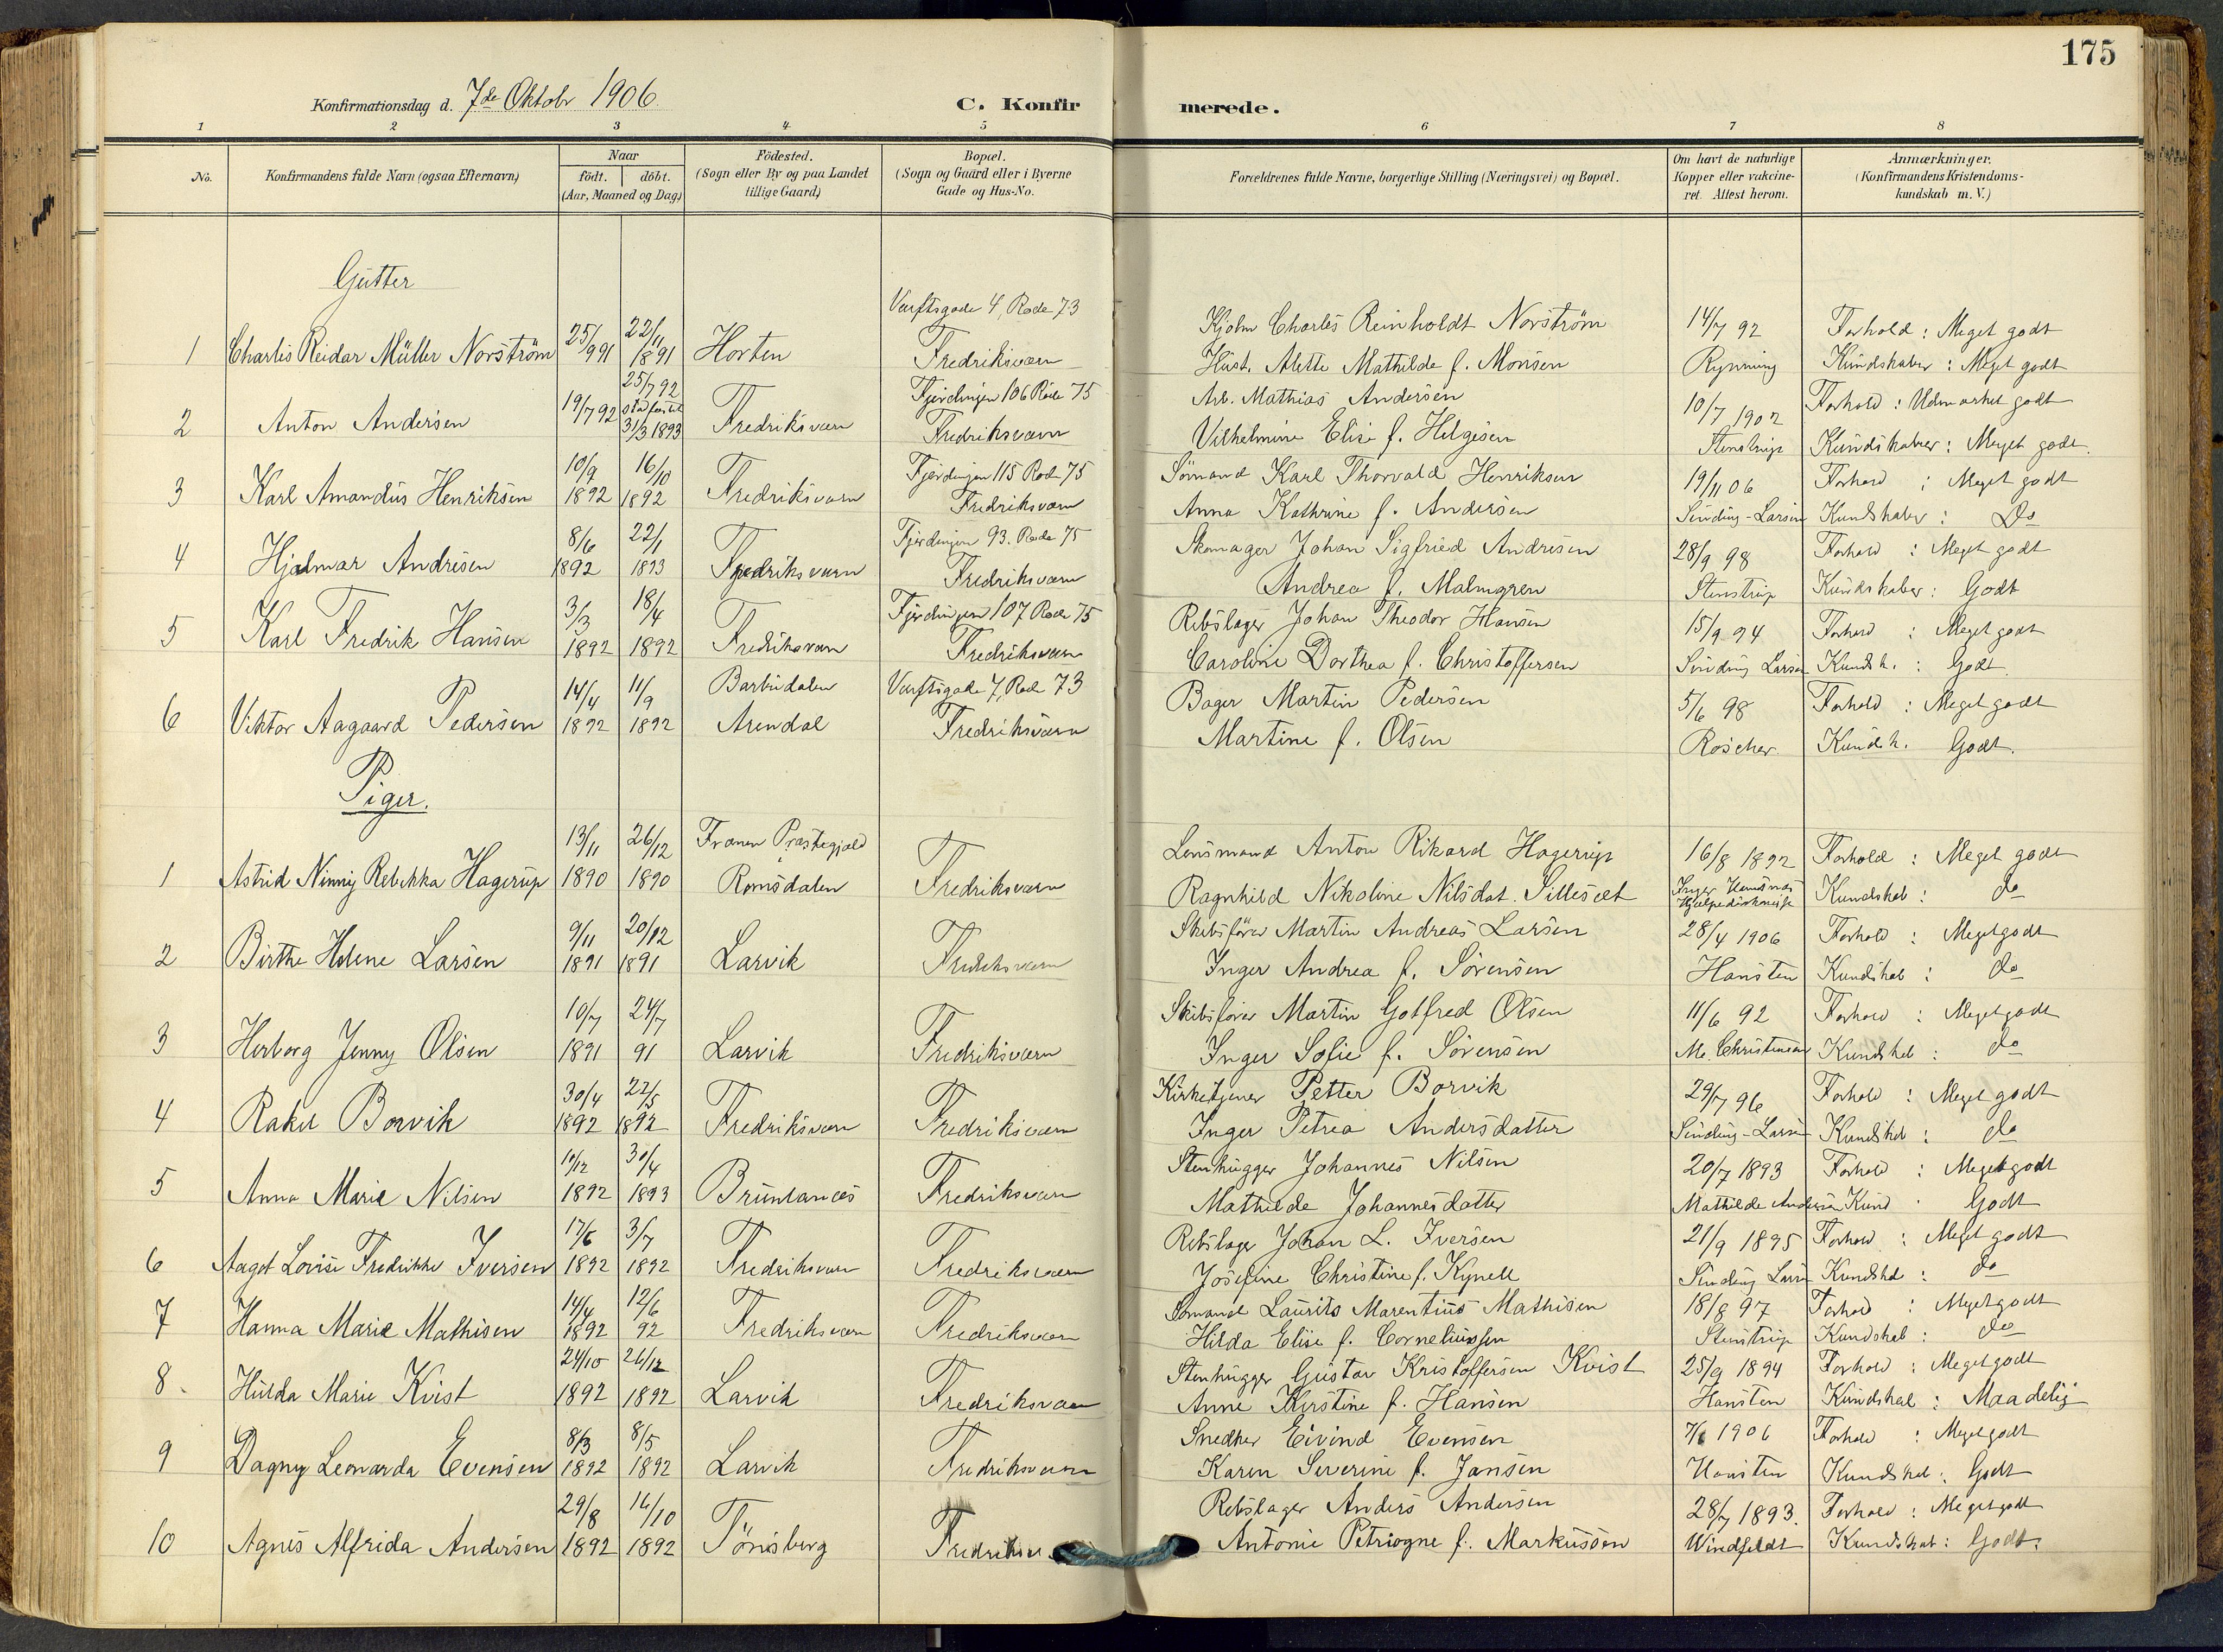 175
Konfirmationsdag d. 7de Oktobr 1906.
C. Konfirmerede.
1 2 3 4 5 6 7 8
No.
Konfirmandens fulde Navn (ogsaa Efternavn)
Naar
födt. döbt.
(Aar, Maaned og Dag)
Födested.
(Sogn eller By og paa Landet
tillige Gaard)
Bopæl.
(Sogn og Gaard eller i Byerne
Gade og Hus-No.
Forældrenes fulde Navne, borgerlige Stilling (Næringsvei) og Bopæl.
Om havt de naturlige
Kopper eller vakcine-
ret. Attest herom.
Anmærkninger.
(Konfirmandens Kristendoms-
kundskab m. V.)
Gutter
Værftsgade 4, Rode 73 Kjolm Charles Reinholdt Norström 14/7 92 Forhold : Meget godt
1 Charles Reidar Müller Norström 25/9 91 22/11 1891 Horten Fredriksværn Hust. Alette Mathilde f. Monsen Rynning Kundskaber : Meget godt
25/7 92 Fjerdingen 106 Rode 75 Arb. Mathias Andersen 10/7 1902 Forhold : Udmærket godt
2 Anton Andersen 19/7 92 stadfæstet 31/3 1893 Fredriksværn Fredriksværn Vilhelmine Elise f. Helgesen Stenstrup Kundskaber : Meget godt.
10/9 16/10 Fjerdingen 115 Rode 75 Sömand Karl Thorvald Henriksen 19/11 06 Forhold : Meget godt
3 Karl Amandus Henriksen 1892 1892 Fredriksværn Fredriksværn Anna Kathrine f. Andersen Sinding-Larsen Kundskaber : Do
8/6 22/1 Fjerdingen 93. Rode 75 Skomager Johan Sigfried Andresen 28/9 98 Forhold : Meget godt
4 Hjalmar Andresen 1892 1893 Fredriksværn Fredriksværn Andrea f. Malmgren Stenstrup Kundskaber : Godt
3/3 18/4 Fjerdingen 107 Rode 75 Rebslager Johan Theodor Hansen 15/9 94 Forhold : Meget godt
5 Karl Fredrik Hansen 1892 1892 Fredriksværn Fredriksværn Caroline Dorthea f. Christoffersen Sinding Larsen Kundsk. : Godt.
14/4 11/9 Barbudalen Værftsgade 7, Rode 73 Bager Martin Pedersen 5/6 98 Forhold : Meget godt
6 Viktor Aagaard Pedersen 1892 1892 Arendal Fredriksværn Martine f. Olsen Roscher Kundsk. Godt.
Piger.
13/11 26/12 Frænen Præstegjæld Lensmand Anton Rikard Hagerup 16/8 1892 Forhold : Meget godt
1 Astrid Ninny Rebekka Hagerup 1890 1890 Romsdalen Fredriksværn Ragnhild Nikoline Nilsdat. Sillesæt Inger Hjælpe Kundskab : do
9/11 20/12 Skibsförer Martin Andreas Larsen 28/4 1906 Forhold : Meget godt
2 Birthe Helene Larsen 1891 1891 Larvik Fredriksværn Inger Andrea f. Sörensen Hansteen Kundskab : do
10/7 24/7 Skibsförer Martin Gotfred Olsen 11/6 92 Forhold : Meget godt
3 Herborg Jenny Olsen 1891 91 Larvik Fredriksværn Inger Sofie f. Sörensen M. Christensen Kundskab : do
30/4 22/5 Kirketjener Petter Borvik 29/7 96 Forhold : Meget godt
4 Rakel Borvik 1892 1892 Fredriksværn Fredriksværn Inger Petrea Andersdatter Sinding-Larsen Kundskab : do
10/12 30/4 Stenhugger Johannes Nilsen 20/7 1893 Forhold : Meget godt
5 Anna Marie Nilsen 1892 1893 Brunlanæs Fredriksværn Mathilde Johannesdatter Mathilde Andersen Kund Godt
17/6 3/7 Rebslager Johan L. Iversen 21/9 1895 Forhold : Meget godt
6 Aagot Lovise Fredrikke Iversen 1892 1892 Fredriksværn Fredriksværn Josefine Christine f. Kynell Sinding Larsen Kundskab : do
14/4 12/6 Sömand Laurits Marentius Mathisen 18/8 97 Forhold : Meget godt
7 Hanna Marie Mathisen 1892 92 Fredriksværn Fredriksværn Hilda Elise f. Corneliussen Stenstrup Kundskab : do
24/10 26/12 Stenhugger Gustav Kristoffersen Kvist 25/9 1894 Forhold : Meget godt
8. Hulda Marie Kvist 1892 1892 Larvik Fredriksværn Anne Kirstine f. Hansen Hansteen Kundskab : Maadelig
8/3 8/5 Snedker Eivind Evensen 7/6 1906 Forhold : Meget godt
9 Dagny Leonarda Evensen 1892 1892 Larvik Fredriksværn Karen Severine f. Jansen Hansteen Kundskab : Godt
29/8 16/10 Rebslager Anders Andersen 28/7 1893. Forhold : Meget godt
10 Agnes Alfrida Andersen 1892 1892 Tönsberg Fredriksv. Antonie Petriogne f. Markussen Windfeldt Kundskab : Godt.